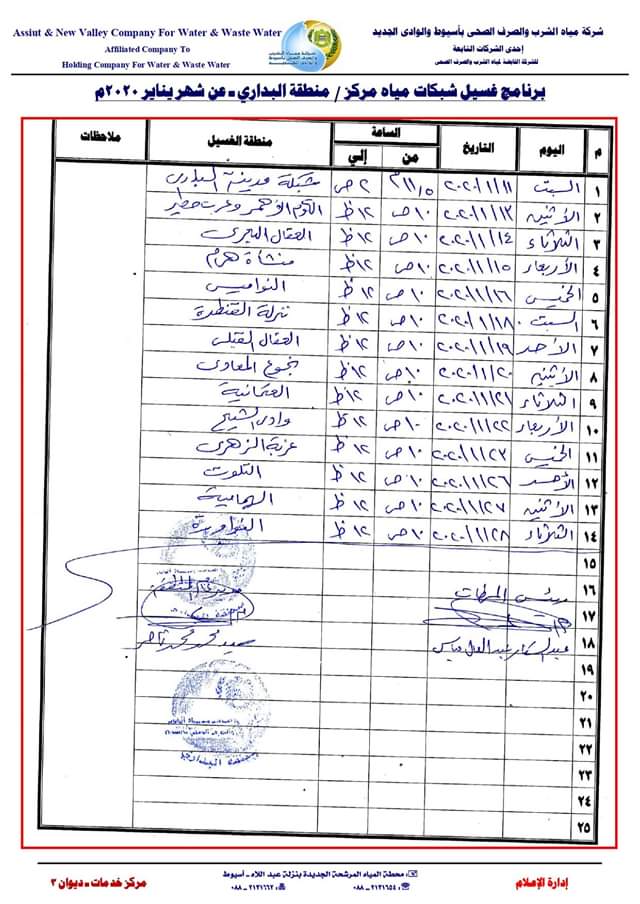 شركة مياه الشرب والصرف الصحى بأسيوط والوادى الجديد
إحدى الشركات التابعة
للشركة القابضة لمياه الشرب والصرف الصحى
Assiut & New Valley Company For Water & Waste Water
Affiliated Company To
Holding Company For Water & Waste Water
برنامج غسيل شبكات مياه مركز / منطقة البداري - عن شهر يناير ٢٠٢٠م
م اليوم التاريخ الساعة منطقة الغسيل ملاحظات
من إلي
١ السبت ٢٠٢٠/١/١١ ٢ ص شبكة مدينة البدارى
٢ الأثنين ٢٠٢٠/١/١٣ ١٠ ص ١٢ ظ الكوم الأحمر وعرب مطير
٣ الثلاثاء ٢٠٢٠/١/١٤ ١٠ ص ١٢ ظ العقال البحرى
٤ الأربعاء ٢٠٢٠/١/١٥ ١٠ ص ١٢ ظ منشأة همام
٥ الخميس ٢٠٢٠/١/١٦ ١٠ ص ١٢ ظ النواميس
٦ السبت ٢٠٢٠/١/١٨ ١٠ ص ١٢ ظ نزلة القنطرة
٧ الأحد ٢٠٢٠/١/١٩ ١٠ ص ١٢ ظ العقال القبلى
٨ الأثنين ٢٠٢٠/١/٢٠ ١٠ ص ١٢ ظ نجوع المعادى
٩ الثلاثاء ٢٠٢٠/١/٢١ ١٠ ص ١٢ ظ العتمانية
١٠ الأربعاء ٢٠٢٠/١/٢٢ ١٠ ص ١٢ ظ وادى الشيح
١١ الخميس ٢٠٢٠/١/٢٣ ١٠ ص ١٢ ظ عزبة الزهرى
١٢ الأحد ٢٠٢٠/١/٢٦ ١٠ ص ١٢ ظ التلوت
١٣ الأثنين ٢٠٢٠/١/٢٧ ١٠ ص ١٢ ظ الهمامية
١٤ الثلاثاء ٢٠٢٠/١/٢٨ ١٠ ص ١٢ ظ النواورة
١٥
١٦ رئيس المحطات
١٧
١٨ عبدالستار عبدالعال
١٩
٢٠
٢١
٢٢
٢٣
٢٤
٢٥
إدارة الإعلام
محطة المياه المرشحة الجديدة بنزلة عبد اللاه - أسيوط
٢١٢١٦٥٤ - ٠٨٨ ٢١٢١٦٦٢ - ٠٨٨
مركز خدمات - ديوان ٣